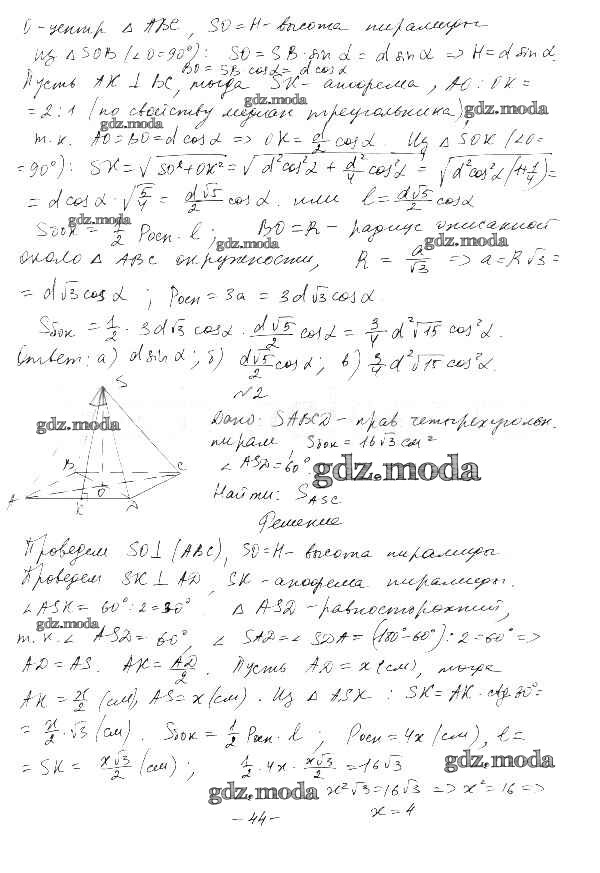 O - центр △ ABC, SO = H - высота пирамиды
Из △ SOB (∠O = 90°): SO = SB · sin α = d sin α => H = d sin α.
BO = SB cos α = d cos α
Пусть AK ⊥ BC, тогда SK - апофема, AO : OK =
gdz.moda
= 2:1 (по свойству медиан треугольника),
gdz.moda
gdz.moda
т.к. AO = BO = d cos α => OK = d/2 cos α. Из △ SOK (∠O =
= 90°): SK = √(SO² + OK²) = √(d² cos² α + d²/4 cos² α) = √(d² cos² α (1 + 1/4)) =
= d cos α · √(5/4) = d√5/2 cos α. или l = d√5/2 cos α
gdz.moda
Sбок = 1/2 Pосн · l ; BO = R - радиус описанной
gdz.moda
gdz.moda
около △ ABC окружности, R = a/√3 => a = R√3 =
= d√3 cos α ; Pосн = 3a = 3d√3 cos α.
Sбок = 1/2 · 3d√3 cos α · d√5/2 cos α = 3/4 d² √15 cos² α.
Ответ: а) d sin α ; б) d√5/2 cos α ; в) 3/4 d² √15 cos² α.
N2
S
gdz.moda
Дано: SABCD - прав. четырехугольн.
пирам, Sбок = 16√3 см²
B
C
∠ ASD = 60°.
gdz.moda
O
A
K
D
Найти: S ASC
Решение
Проведем SO ⊥ (ABC), SO = H - высота пирамиды
Проведем SK ⊥ AD, SK - апофема пирамиды.
∠ ASK = 60° : 2 = 30° △ ASD - равносторонний,
gdz.moda
т.к. ∠ ASD = 60°, ∠ SAD = ∠ SDA = (180° - 60°) : 2 = 60° =>
AD = AS. AK = AD/2. Пусть AD = x (см), тогда
AK = x/2 (см), AS = x (см). Из △ ASK : SK = AK · ctg 30° =
= x/2 · √3 (см). Sбок = 1/2 Pосн · l ; Pосн = 4x (см), l =
= SK = x√3/2 (см) ; 1/2 · 4x · x√3/2 = 16√3
gdz.moda
gdz.moda
x²√3 = 16√3 => x² = 16 =>
x = 4
- 44 -